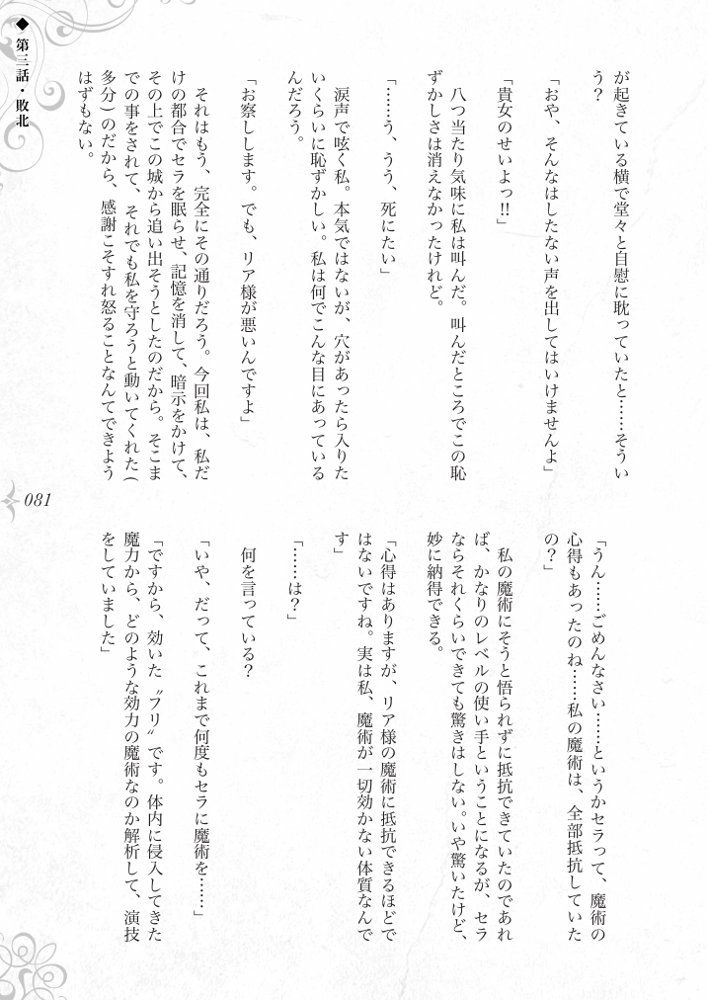 ◆ 第三話・敗北
が起きている横で堂々と自慰に耽っていたと……そうい
う？
「おや、そんなはしたない声を出してはいけませんよ」
「貴女のせいよっ‼」
八つ当たり気味に私は叫んだ。叫んだところでこの恥
ずかしさは消えなかったけれど。
「……う、うう、死にたい」
涙声で呟く私。本気ではないが、穴があったら入りた
いくらいに恥ずかしい。私は何でこんな目にあっている
んだろう。
「お察しします。でも、リア様が悪いんですよ」
それはもう、完全にその通りだろう。今回私は、私だ
けの都合でセラを眠らせ、記憶を消して、暗示をかけて、
その上でこの城から追い出そうとしたのだから。そこま
での事をされて、それでも私を守ろうと動いてくれた（
多分）のだから、感謝こそすれ怒ることなんてできよう
はずもない。
「うん……ごめんなさい……というかセラって、魔術の
心得もあったのね……私の魔術は、全部抵抗していた
の？」
私の魔術にそうと悟られずに抵抗できていたのであれ
ば、かなりのレベルの使い手ということになるが、セラ
ならそれくらいできても驚きはしない。いや驚いたけど、
妙に納得できる。
「心得はありますが、リア様の魔術に抵抗できるほどで
はないですね。実は私、魔術が一切効かない体質なんで
す」
「……は？」
何を言っている？
「いや、だって、これまで何度もセラに魔術を……」
「ですから、効いた〝フリ〟です。体内に侵入してきた
魔力から、どのような効力の魔術なのか解析して、演技
をしていました」
081